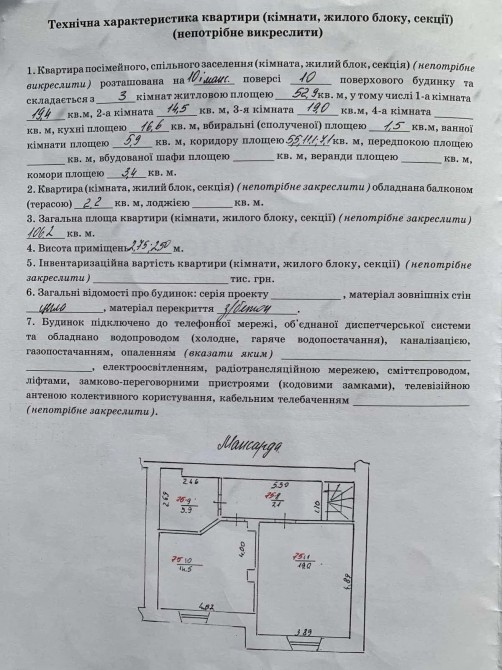 Технічна характеристика квартири (кімнати, жилого блоку, секції)
(непотрібне викреслити)
1. Квартира посімейного, спільного заселення (кімната, жилий блок, секція) (непотрібне
викреслити) розташована на 10 і манс. поверсі 10 поверхового будинку та
складається з 3 кімнат житловою площею 52,9 кв. м, у тому числі 1-а кімната
19,4 кв.м, 2-а кімната 14,5 кв. м, 3-я кімната 19,0 кв.м, 4-а кімната
кв. м, кухні площею 16,6 кв. м, вбиральні (сполученої) площею 1,5 кв.м, ванної
кімнати площею 5,9 кв. м, коридору площею кв.м, передпокою площею
кв. м, вбудованої шафи площею кв. м, веранди площею кв. м,
комори площею 3,4 кв. м.
2. Квартира (кімната, жилий блок, секція) (непотрібне закреслити) обладнана балконом
(терасою) 2,2 кв. м, лоджією кв. м.
3. Загальна площа квартири (кімнати, жилого блоку, секції) (непотрібне закреслити)
106,2 кв. м.
4. Висота приміщень 2,75; 2,50 м.
5. Інвентаризаційна вартість квартири (кімнати, жилого блоку, секції) (непотрібне
закреслити) тис. грн.
6. Загальні відомості про будинок: серія проекту , матеріал зовнішніх стін
цегла , матеріал перекриття з/бетон .
7. Будинок підключено до телефонної мережі, об'єднаної диспетчерської системи
та обладнано водопроводом (холодне, гаряче водопостачання), каналізацією,
газопостачанням, опаленням (вказати яким)
, електроосвітленням, радіотрансляційною мережею, сміттєпроводом,
ліфтами, замково-переговорними пристроями (кодовими замками), телевізійною
антеною колективного користування, кабельним телебаченням
(непотрібне закреслити).
Мансарда
2.46 5.50
2.69 75-9 5.9 75-8 7.1 1.10
4.00
75-10 14.5 75-11 19.0 4.89
4.02
3.89